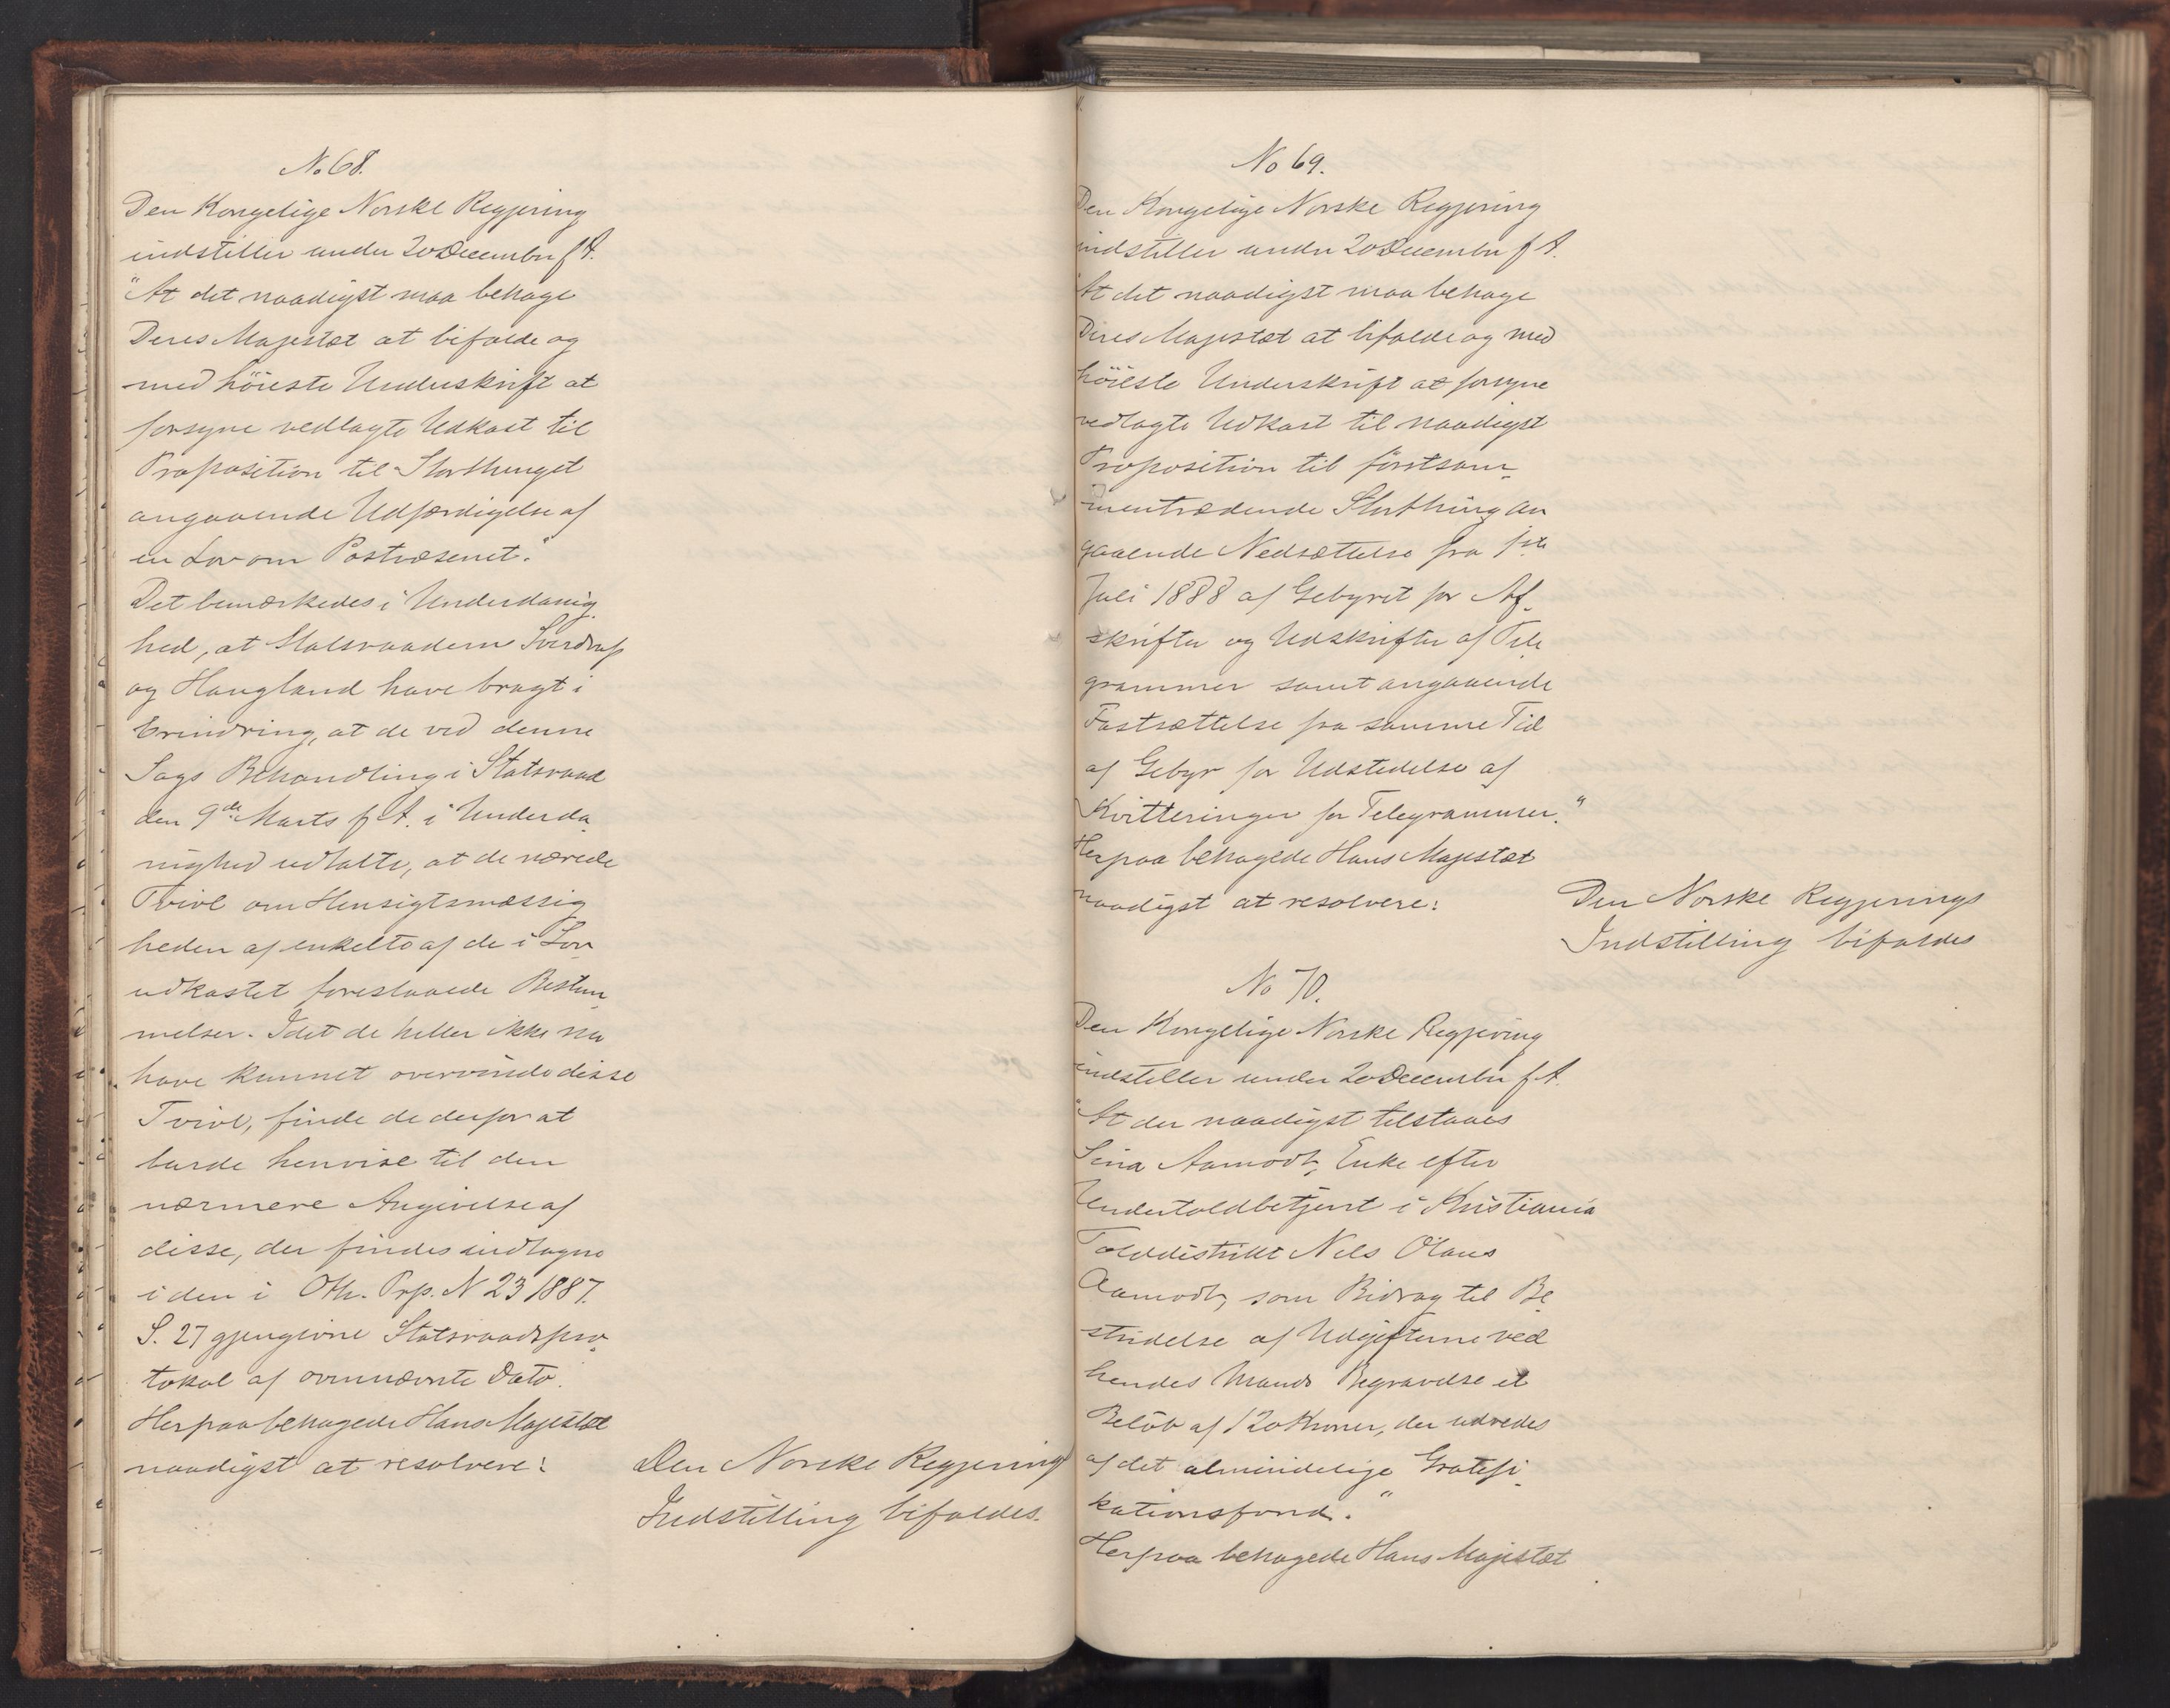 No 68.
Den Kongelige Norske Regjering
indstiller under 20 December f A.
"At det naadigst maa behage
Deres Majestæt at bifalde og
med höieste Underskrift at
forsyne vedlagte Udkast til
Proposition til Storthinget
angaaende Udfærdigelse af
en Lov om Postvæsenet."
Det bemærkedes i Underdanig-
hed, at Statsraaderne Sverdrup
og Haugland have bragt i
Erindring, at de ved denne
Sags Behandling i Statsraad
den 9de Marts f A. i Underda-
nighed udtalte, at de nærede
Tvivl om Hensigtsmæssig
heden af enkelte af de i Lov-
udkastet foreslaaede Bestem-
melser. Idet de heller ikke nu
have kunnet overvinde disse
Tvivl, finde de derfor at
burde henvise til den
nærmere Angivelse af
disse, der findes indtagne
i den i Oth. Prp. N 23 1887.
S. 27 gjengivne Statsraadspro-
tokol af ovennævnte Dato.
Herpaa behagede Hans Majestæt
naadigst at resolvere:
Den Norske Regjerings
Indstilling bifaldes.
No 69.
Den Kongelige Norske Regjering
indstiller under 20 December f A.
"At det naadigst maa behage
Deres Majestæt at bifalde og med
höieste Underskrift at forsyne
vedlagte Udkast til naadigst
Proposition til förstsam-
mentrædende Storthing an
gaaende Nedsættelse fra 1ste
Juli 1888 af Gebyret for Af-
skrifter og Udskrifter af Tele
grammer samt angaaende
Fastsættelse fra samme Tid
af Gebyr for Udstedelse af
Kvitteringer for Telegrammer."
Herpaa behagede Hans Majestæt
naadigst at resolvere:
Den Norske Regjerings
Indstilling bifaldes
No 70.
Den Kongelige Norske Regjering
indstiller under 20 December f A.
"At der naadigst tilstaaes
Sina Aamodt, Enke efter
Undertoldbetjent i Kristiania
Tolddistrikt Nils Olaus
Aamodt, som Bidrag til Be
stridelse af Udgifterne ved
hendes Mands Begravelse et
Belöb af 120 Kroner, der udredes
af det almindelige Gratifi-
kationsfond."
Herpaa behagede Hans Majestæt